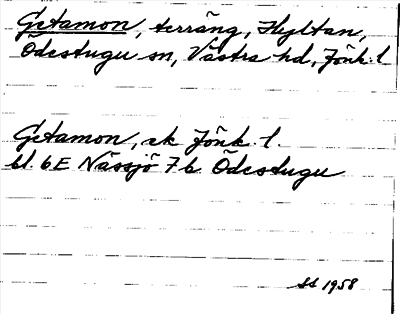 Getamon, terräng, Hyltan,
Ödestugu sn, Västra hd, Jönk. l
Getamon, ek Jönk. l.
bl. 6E Nässjö 7b Ödestugu
SS 1958